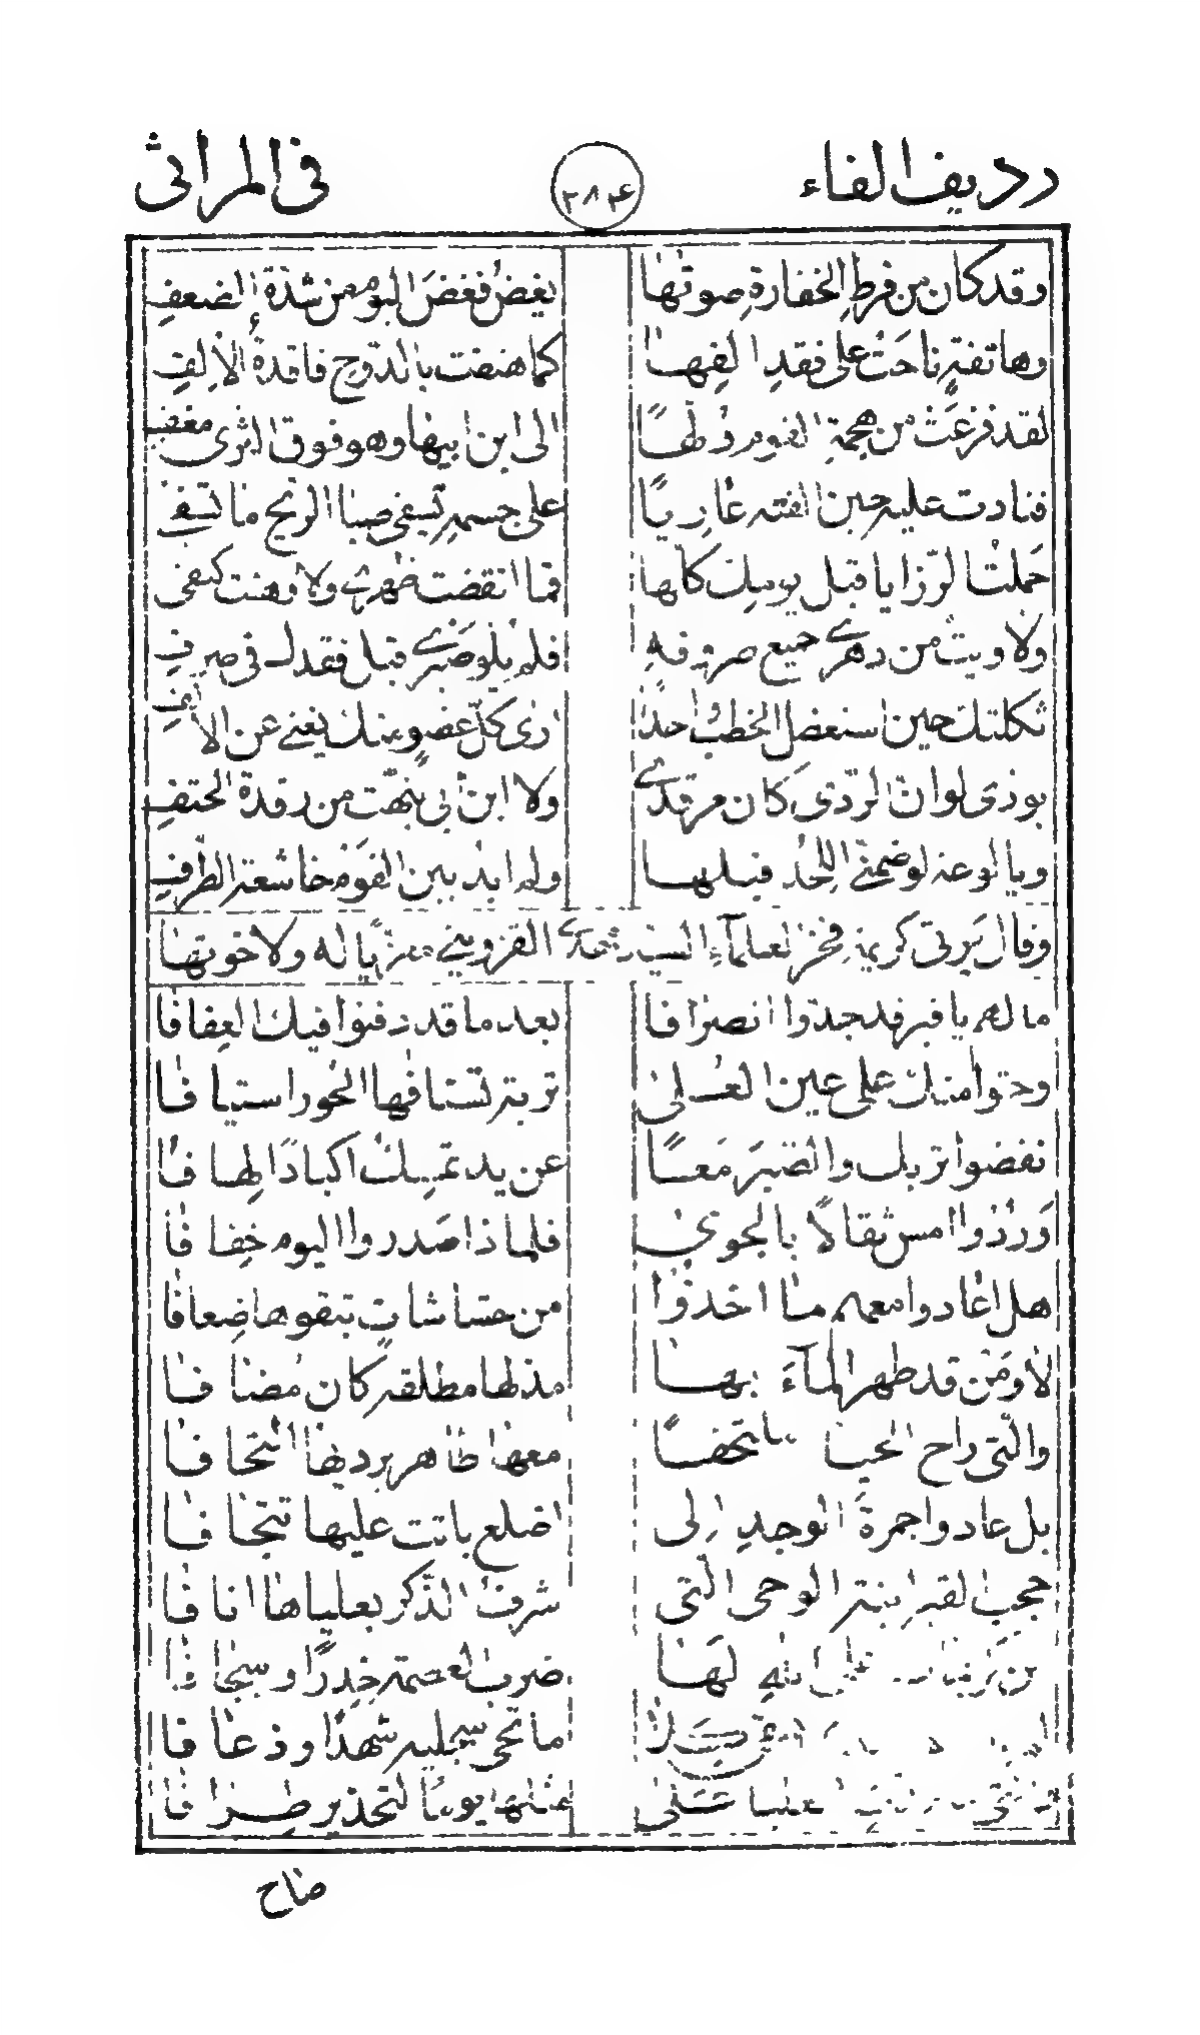 رديف الفاء ٢٨٤ في المراثي
وقد كان من فرطِ الخفارةِ صوتُها يغضُّ فغضَّ اليوم من شدّةِ الضعفِ
وهاتفةٍ ناحَتْ على فقدِ الفِها كما هتفت بالدّوح فاقدةُ الألفِ
لقد فزعَتْ من هجمةِ القوم ولّهاً الى ابن ابيها وهو فوق الثرى مغفي
فنادت عليه حين الفته عاريًا على جسمهِ تسفي صبا الريح ما تسفي
حَملتُ الرّزايا قبل يومك كلّها فما انقضت ظهري ولا وهنت كتفي
ولا ويت من دهري جميع صروفهِ فلم يلو صبري قبل فقدك في صرفِ
ثكلتك حين استعضل الخطب احدًا ارى كلّ عضوٍ منك يغني عن الألفِ
بودّي لو انّ الردّى كان مرقدي ولا ابن ابي نبّهت من رقدة الحتفِ
ويا لوعة لو ضمّني اللحد قبلها ولم ابد بين القوم خاشعة الطرفِ
وقال يرثي كريمة فخر العلمآءِ السيد مهدي القزويني معزّيًا له ولاخوتها
ما لهم يا قبر قد جدّوا انصرافا بعد ما قد دفنوا فيك العِفافا
وحثوا منك على عين العُلى تربة تستافها الحُور استيافا
نفضوا تربك والصبرَ مَعًا عن يد تمسك اكبادًا لهافا
وَرَدُوا امس ثقالاً بالجوى فلماذا صَدروا اليوم خِفافا
هل اعادوا معهم ما اخذوا من حشاشاتٍ تبقوها ضِعافا
لا ومَنْ قد طهر المآءَ بها مذ لها مطلقه كان مُضافا
والّتي راح الحيا ملتحفًا معها طاهر برديها التحافا
بل عادوا جمرة الوجدِ الى اضلع باتت عليها تتجافى
حجب القبر ابنة الوحي التي شرف الذّكر بعلياها انافا
لَها ضربت العصمة خِدرًا وسجافا
ما تحى سجليه شهدًا وذعافا
مثلها يومًا لتحذير طرافا
صاح